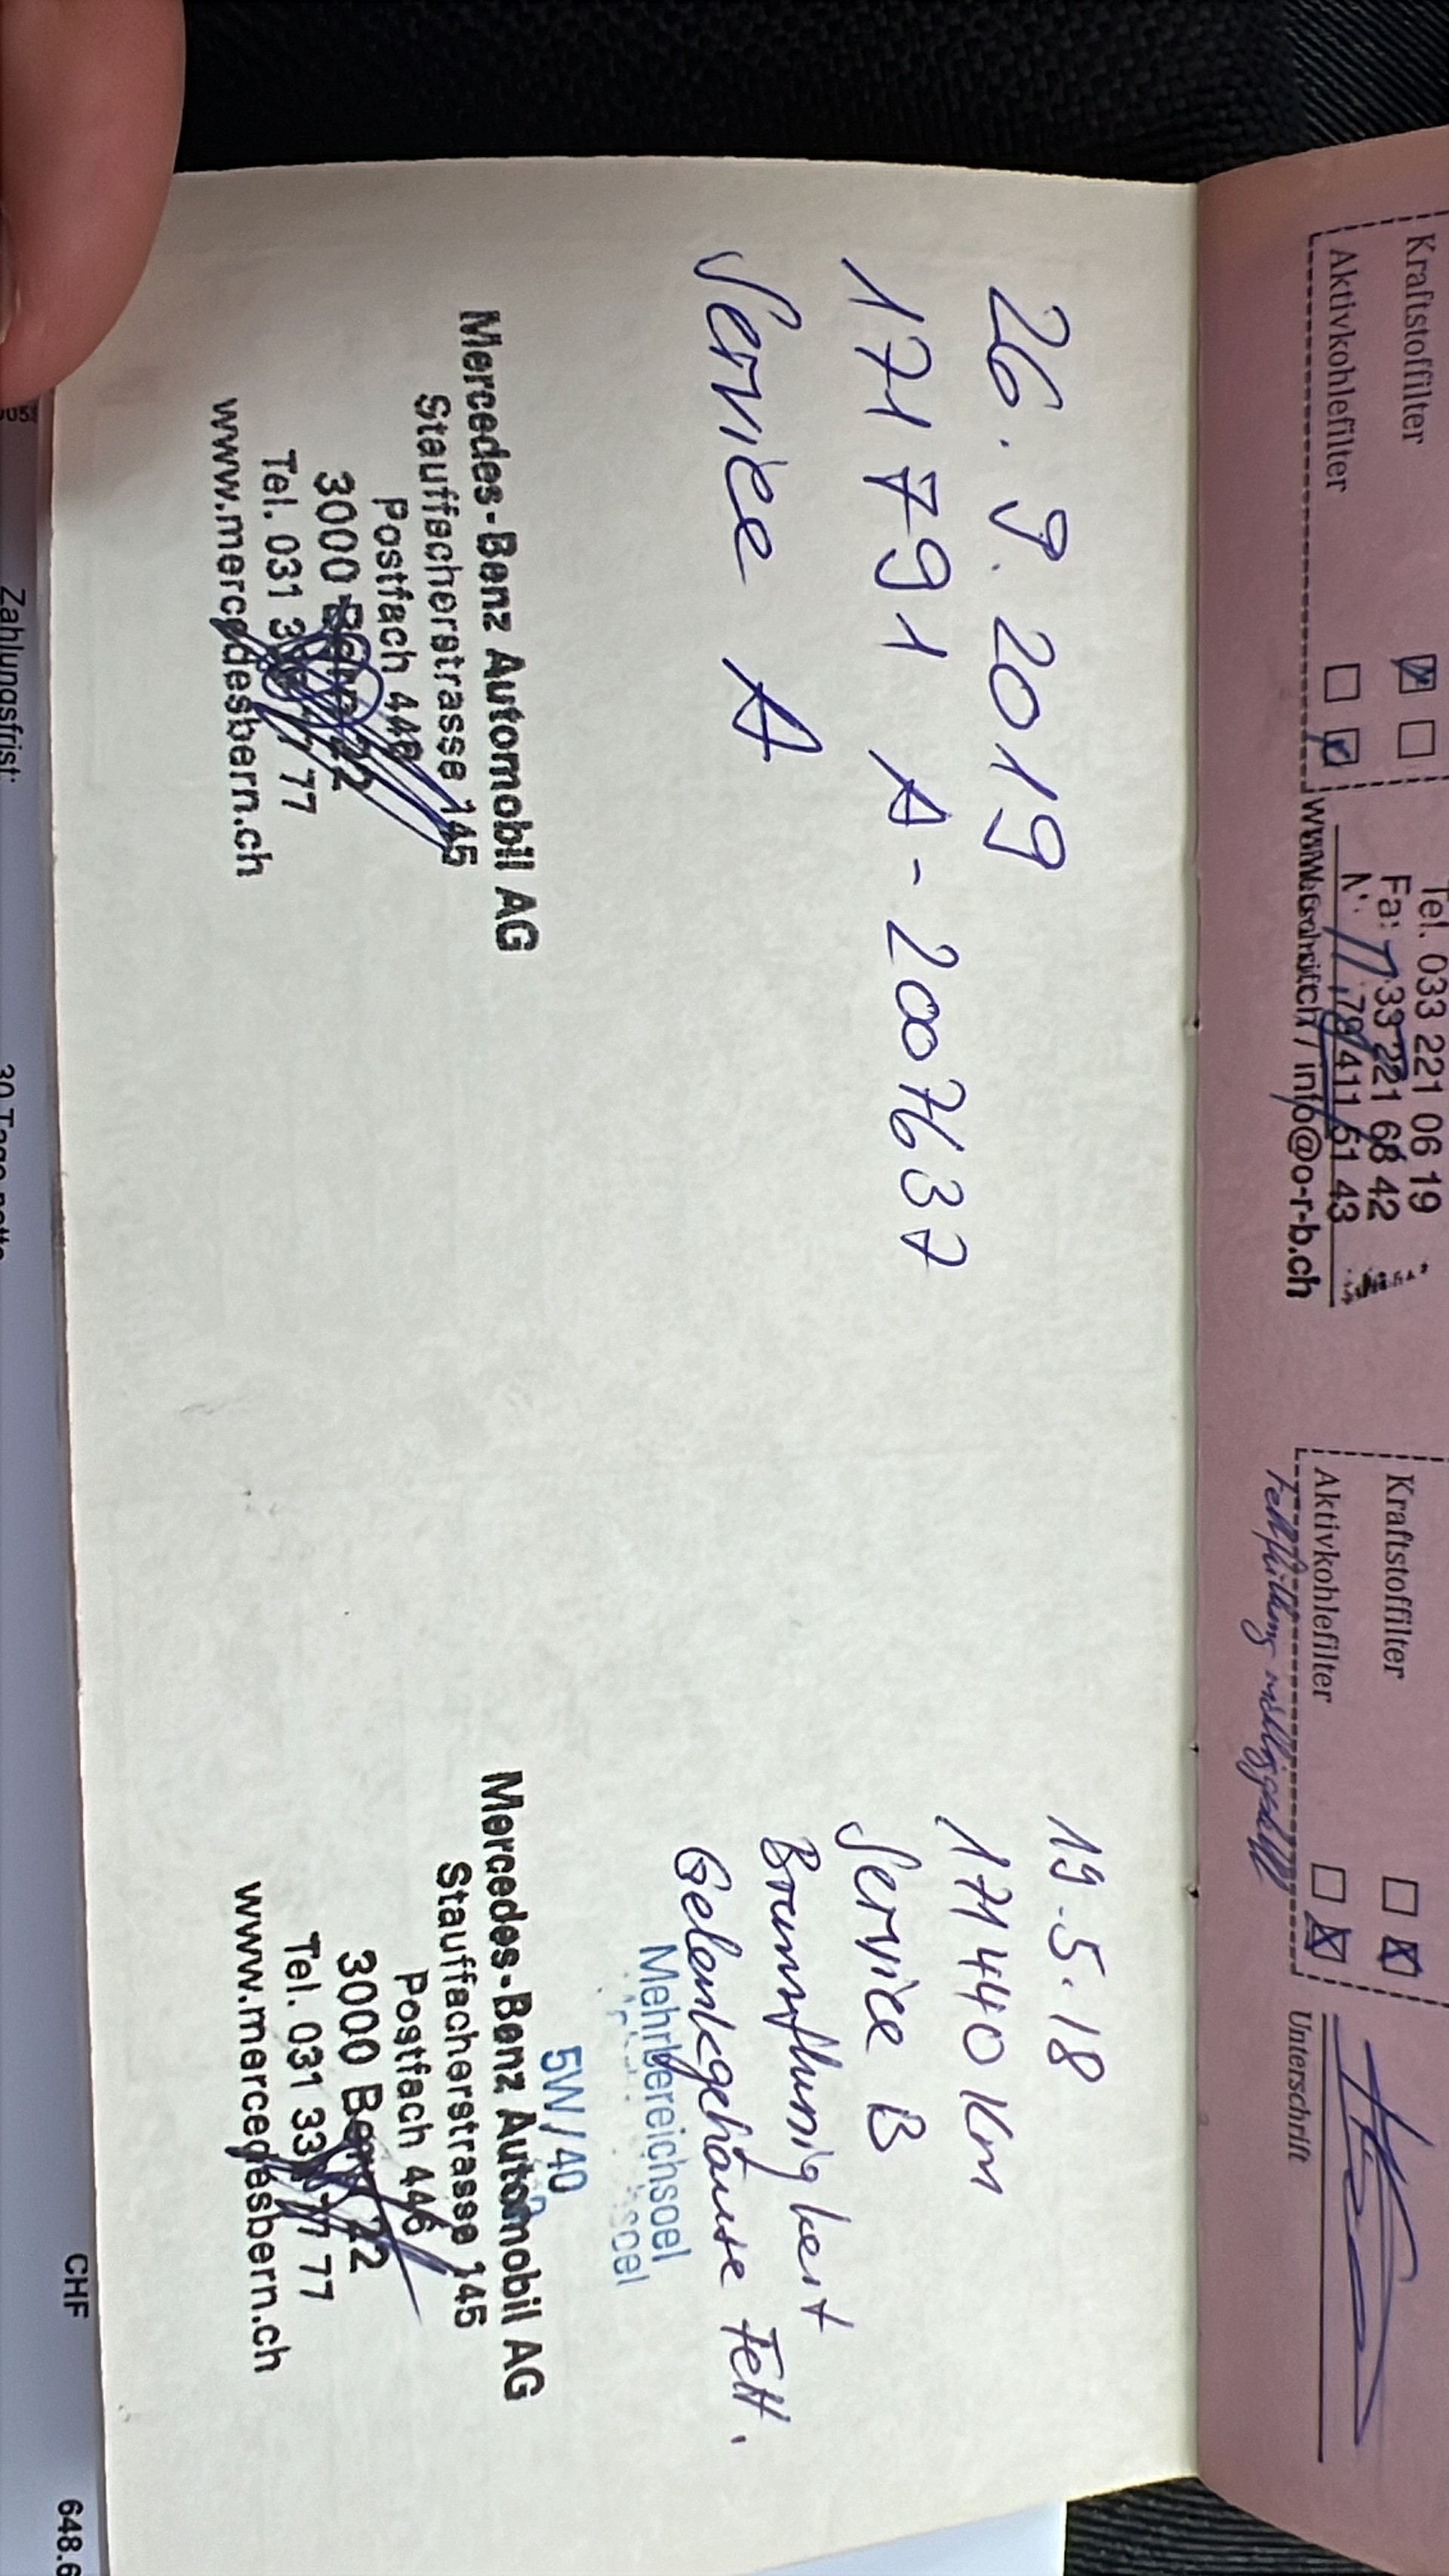 Kraftstoffilter
Aktivkohlefilter
Tel. 033 221 06 19
33 221 68 42
411 51 43
info@o-r-b.ch
Kraftstoffilter
Aktivkohlefilter
Unterschrift
26.9.2019
171791 A-2007637
Service A
Mercedes-Benz Automobil AG
Stauffacherstrasse 145
Postfach 446
3000 Bern 22
Tel. 031 3 77 77
www.mercedesbern.ch
19.5.18
171440 Km
Service B
Bremsflüssigkeit
Gelenkgehäuse Fett.
Mehrbereichsoel
5W/40
Mercedes-Benz Automobil AG
Stauffacherstrasse 145
Postfach 446
3000 Bern 22
Tel. 031 33 77 77
www.mercedesbern.ch
Zahlungsfrist:
30 Tage netto
CHF
648.6